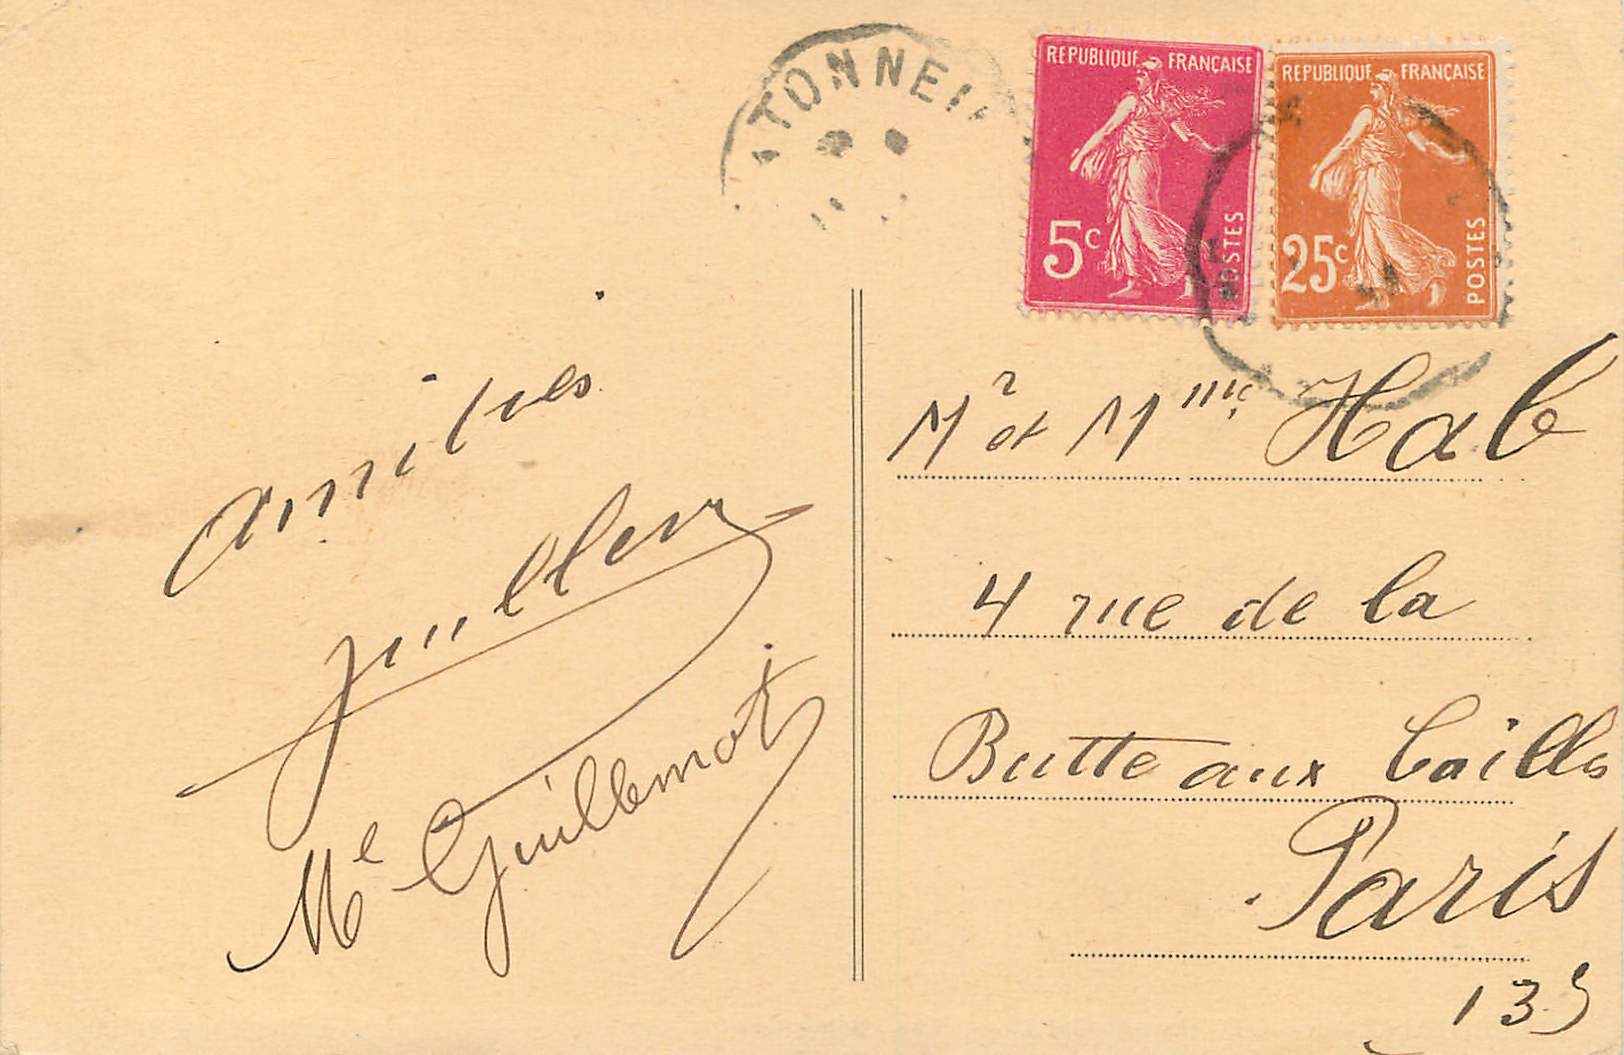 TONNE
REPUBLIQUE FRANÇAISE
5c
POSTES
REPUBLIQUE FRANÇAISE
25c
POSTES
Amitiés
Mr et Mme Hab
4 rue de la
Butte aux Cailles
Paris
13e
Me Guillemot